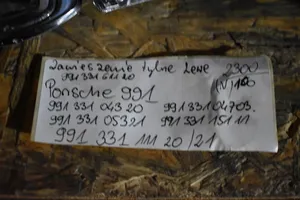 Zawieszenie tylne Lewe 2300
991 331 611 20 (N) 100
Porsche 991
991 331 043 20 991 331 047 03.
991 331 053 21 991 331 151 11
991 331 111 20/21